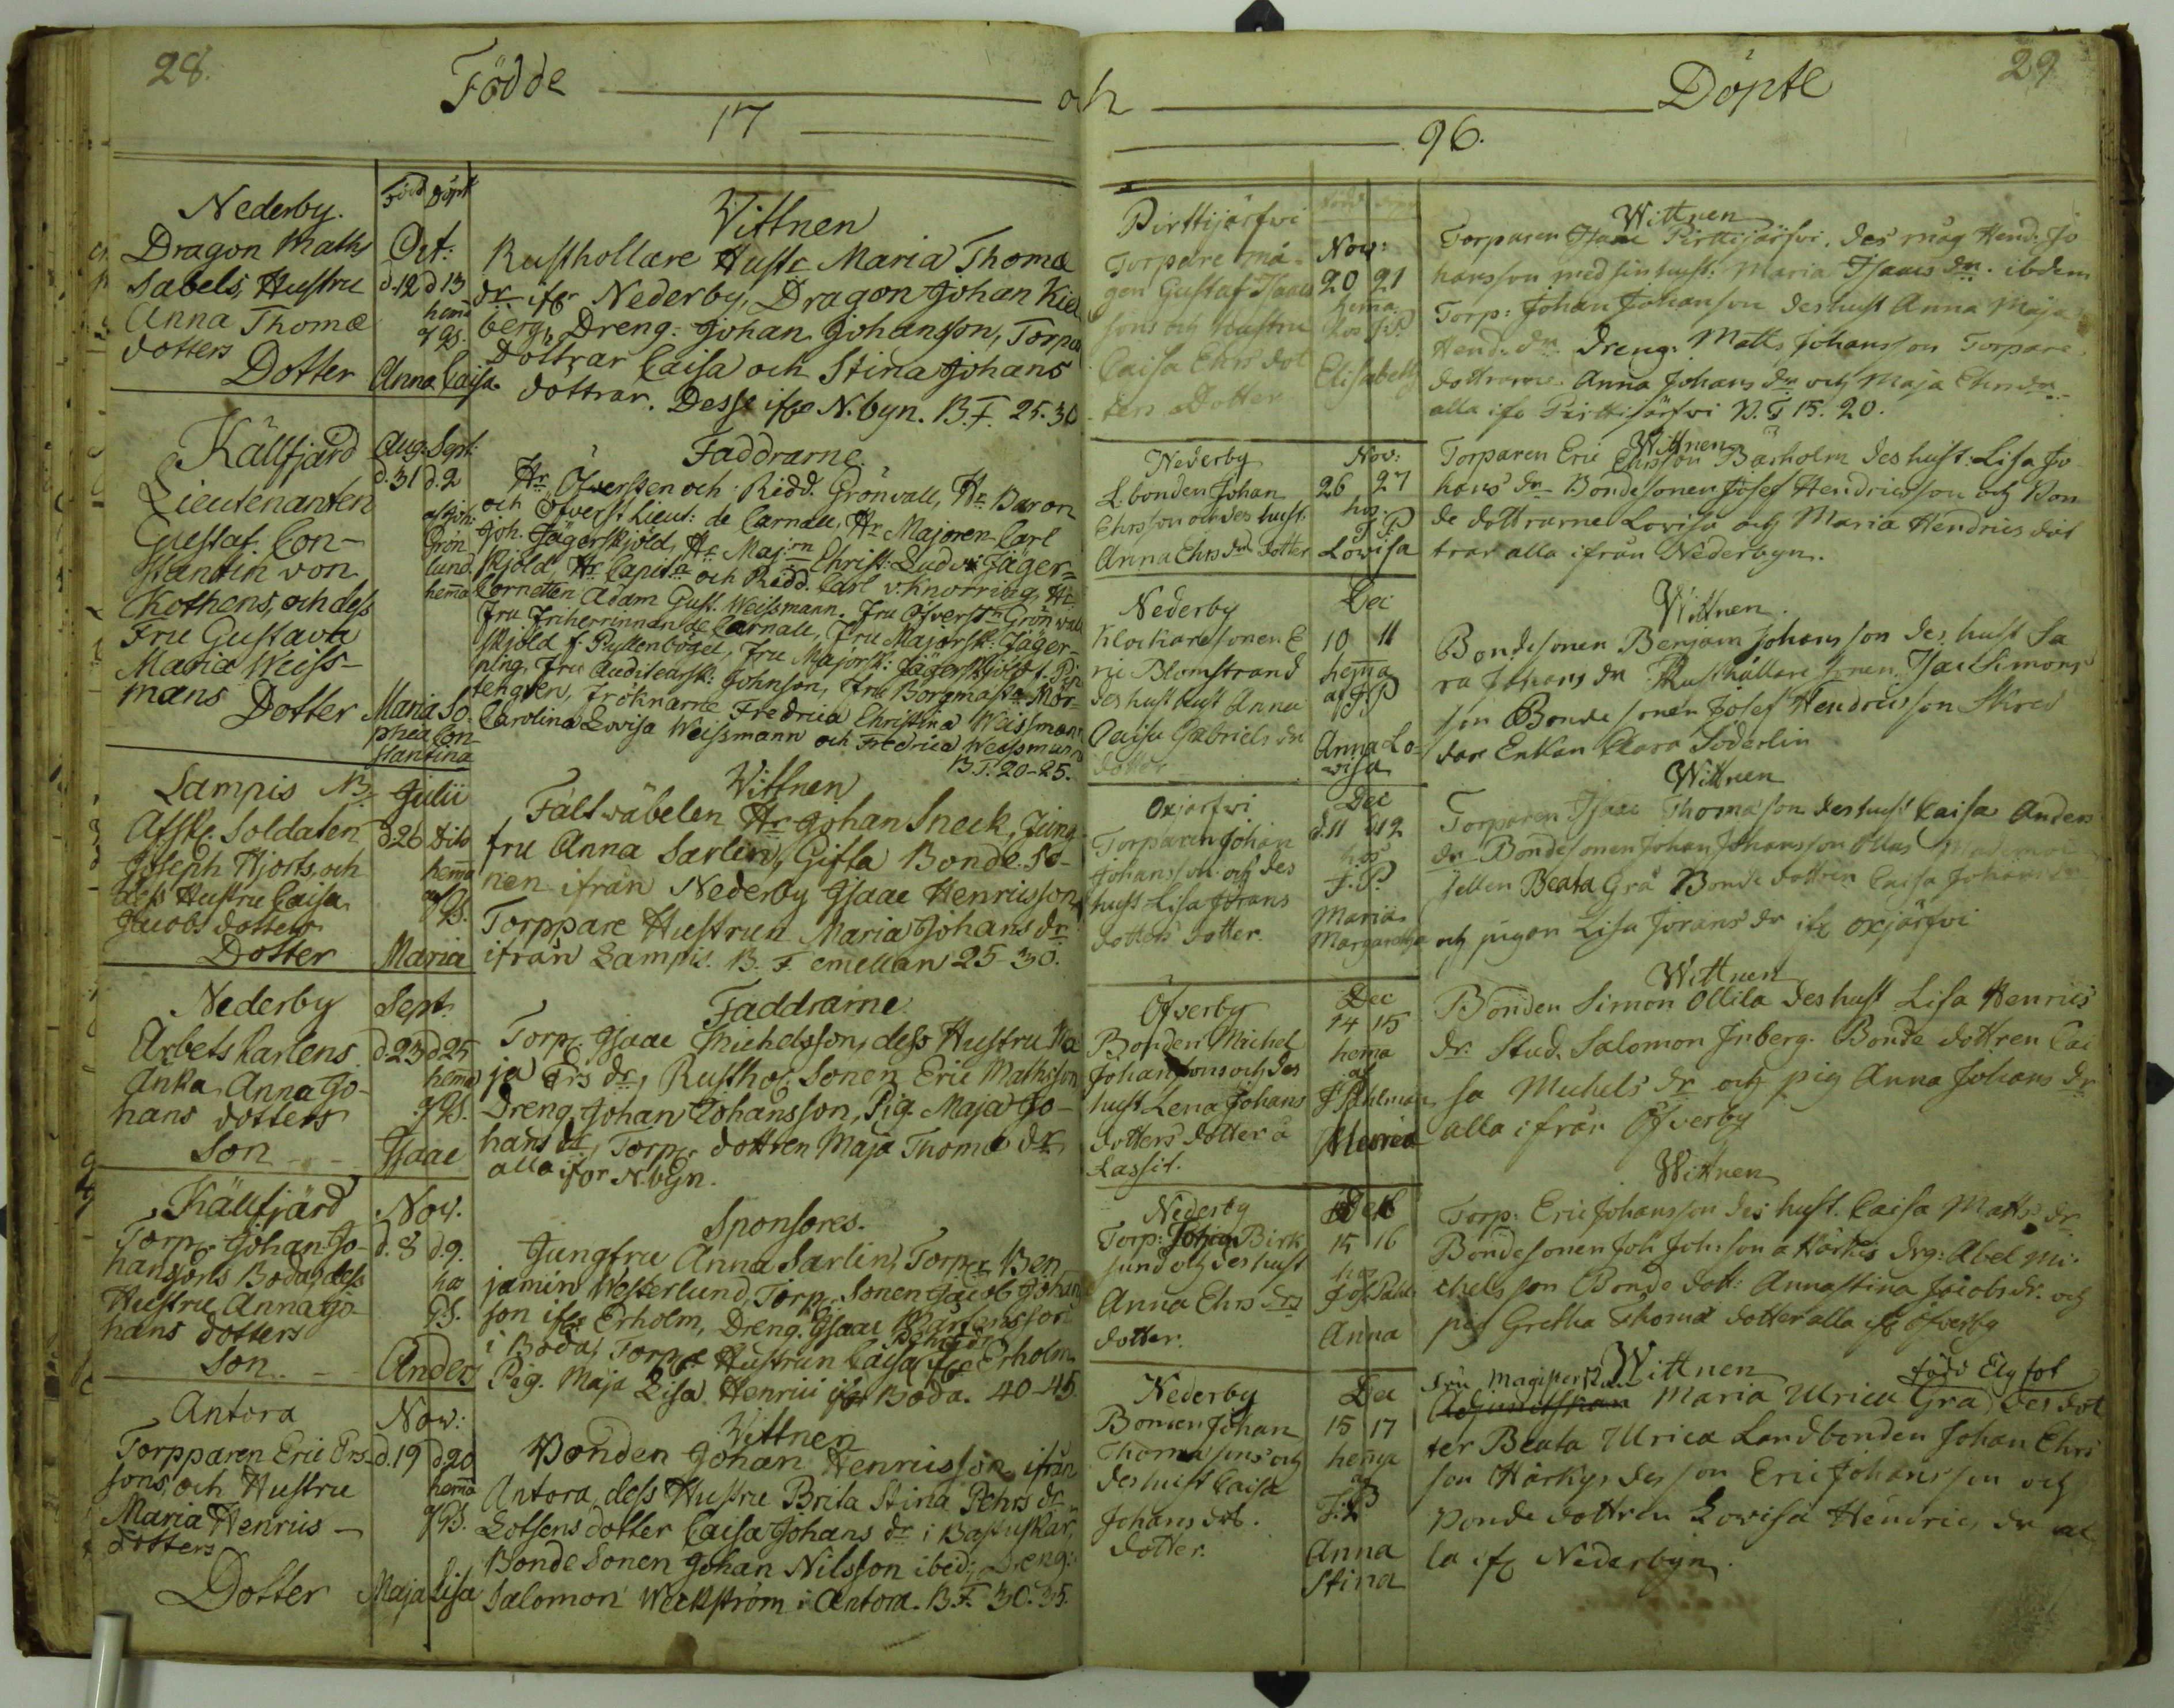 28.
Födde
17
Nederby.
Född
Döpt
Dragon Maths
Sabels, Hustru
Anna Thomæ
dotters
Dotter
Oct:
d.12 d 13
hema
Anna Caisa
Vittnen
Rusthollare Hustr Maria Thomæ
dr ifr Nederby, Dragon Johan Kiel
berg, Dreng: Johan Johansson, Torpa
Dottrar Caisa och Stina Johans
dottrar. Desse ifr N.byn. B.F. 25.30
Källfjärd
Lieutenanten
Gustaf Con-
stantin von
Kothens, och dess
Fru Gustava
Maria Weiss-
mans
Dotter
Aug: Sept:
d.31 d.2
Grön
lund
hema
Maria So-
phia Con-
stantina
Faddrarne
Hr Öfversten och Ridd. Grönvall, Hr Baron
och Öfverst Lieut: de Carnall, Hr Majoren Carl
Joh. Jägerskjöld, Hr Maj:rn Christ: Ludv: Jäger=
skjöld, Hr Capit:n och Ridd. Carl v. Knorring, Hr
Cornetten Adam Gust. Weissmann. Fru Öfverst:n Grönvall
Fru Friherrinnan de Carnall, Fru Majorsk: Jäger-
skjöld f. Pullenbögel, Fru Majorsk: Jägerskjöld f. Pip
ping, Fru Auditeursk: Johnson, Fru Borgmast:n Mör-
tengren, Fröknarne Fredrica Christina Weissmann
Carolina Lovisa Weissmann och Fredrica Weissmann
B.F. 20-25.
Lampis
Afsk. Soldaten
Joseph Hjorts, och
dess Hustru Caisa
Jacobs dotters
Dotter
Julii
d26 dito
hema
Maria
Vittnen
Fältväbelen Hr Johan Sneck, Jung-
fru Anna Sarlin, Gifta Bonde So-
nen ifrån Nederby Isaac Henricsson
Torppare Hustrun Maria Johans dr
ifrån Lampis. B. F. emellan 25-30.
Nederby
Arbets Karlens
Anka Anna Jo-
hans dotters
Son
Sept
d.23 d25
hema
Isaac
Faddrarne
Torp: Isaac Michelsson, dess Hustru Ma
ja Ers dr, Rusthol: Sonen Eric Mathsson
Dreng: Johan Johansson, Pig. Maja Jo-
hans dr, Torp: dottren Maja Thomæ dr
alla ifr N.byn.
Källfjärd
Torp: Johan Jo-
hanssons Boda, dess
Hustru Anna Jo-
hans dotters
Son
Nov.
d. 8 d.9.
Anders
Sponsores.
Jungfru Anna Sarlin, Torp: Ben
jamin Westerlund, Torp: Sonen Jacob Johan
son ifr Erholm, Dreng. Isaac
i Boda, Torp: Hustrun Caisa ifr Erholm
Pig. Maja Lisa Henrici ifr Boda. 40-45.
Antora
Torpparen Eric Ers-
sons, och Hustru
Maria Henrics-
dotters
Dotter
Nov:
d.19 d20
hema
Maja Lisa
Vittnen
Bonden Johan Henricsson ifrån
Antora, dess Hustru Brita Stina Pehrs dr
Lotsens dotter Caisa Johans dr i
Bonde Sonen Johan Nilsson ibid; Dreng:
Salomon Weckström i Antora. B.F. 30.35.
29
och
Döpte
96.
Pirttijärfvi
Torpare må-
gen Gustaf Isaacs
sons och hustru
Caisa Ehrs dot
ters Dotter
Nov:
20 21
hema
hos F.P
Elisabeth
Wittnen
Torparen Isaac Pirttijärfvi. des måg Hend: Jo
hansson med sin hust: Maria Isaacs dr. ibidem
Torp: Johan Johansson des hust Anna Maja
Hend: dr Dreng: Matts Johansson Torpare
dottrarne Anna Johans dr och Maja Ehrs dr
alla ifr Pirttijärfvi B.F 15. 20.
Nederby
L.bonden Johan
Ehrsson och des hust.
Anna Ehrs dr dotter
Nov:
26 27
hos
F. P
Lowisa
Wittnen
Torparen Eric Ehrsson Barholm des hust: Lisa Jo
hans dr Bondesonen Josef Hendricsson och Bon
de dottrarne Lovisa och Maria Hendrics döt
trar alla ifrån Nederbyn.
Nederby
Klockaresonen E
ric Blomstrand
des hust Anna
Caisa Gabriels dr
dotter
Dec
10 11
hema
af F.P
Anna Lo-
wisa
Wittnen.
Bondesonen Benjam Johansson des hust Sa
ra Johans dr Rusthållare sonen Isac Simons
son Bonde sonen Josef Hendricsson Skred
dare Enkan Clara Söderlin
Oxjärfvi
Torparen Johan
Johansson och des
hust Lisa Jörans
dotters dotter.
Dec
d.11 d12
hos
F. P.
Maria
Margaretha
Wittnen
Torparen Isaac Thomasson des hust Caisa Anders
dr Bondesonen Johan Johansson Ollas
sellen Beata Grå Bonde dottren Caisa Johans dr
och pigan Lisa Jörans dr ifr oxjärfvi
Öfverby
Bonden Michel
Johanssons och des
hust Lena Johans
dotters dotter å
Lassit.
Dec
14 15
hema
af
F Pahlman
Maria
Wittnen
Bonden Simon Ollila des hust Lisa Henrics
dr. Stud. Salomon Inberg. Bonde dottren Cai
sa Michels dr och pig Anna Johans dr
alla ifrån Öfverby
Nederby
Torp: Johan Birk
lund och des hust
Anna Ehrs drs
dotter.
Dec
15 16
hos
Anna
Wittnen
Torp: Eric Johansson des hust. Caisa Matts dr
Bondesonen Joh Johsson a Härkis drg: Abel Mi-
chelsson Bonde dott: Anna Stina Jacobs dr. och
pig Gretha Thomæ dotter alla ifr Öfverby
Nederby
Bonden Johan
Thomæ sons och
des hust Caisa
Johans dot.
dotter.
Dec
15 17
hema
af
F. P
Anna
Stina
Wittnen
Fru Magisterskan
född Elgfot
Adjunctskan Maria Ulrica Grå, des dot
ter Beata Ulrica Landbonden Johan Ehrs
son Härkys des son Eric Johansson och
Bonde dottren Lovisa Hendrics dr al
la ifr Nederbyn.